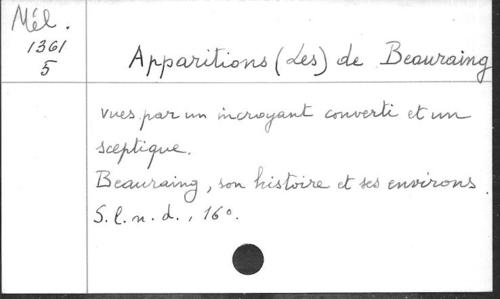 Mél.
1361
5
Apparitions (Les) de Beauraing
vues par un incroyant converti et un
sceptique.
Beauraing, son histoire et ses environs.
S.l.n.d., 16°.